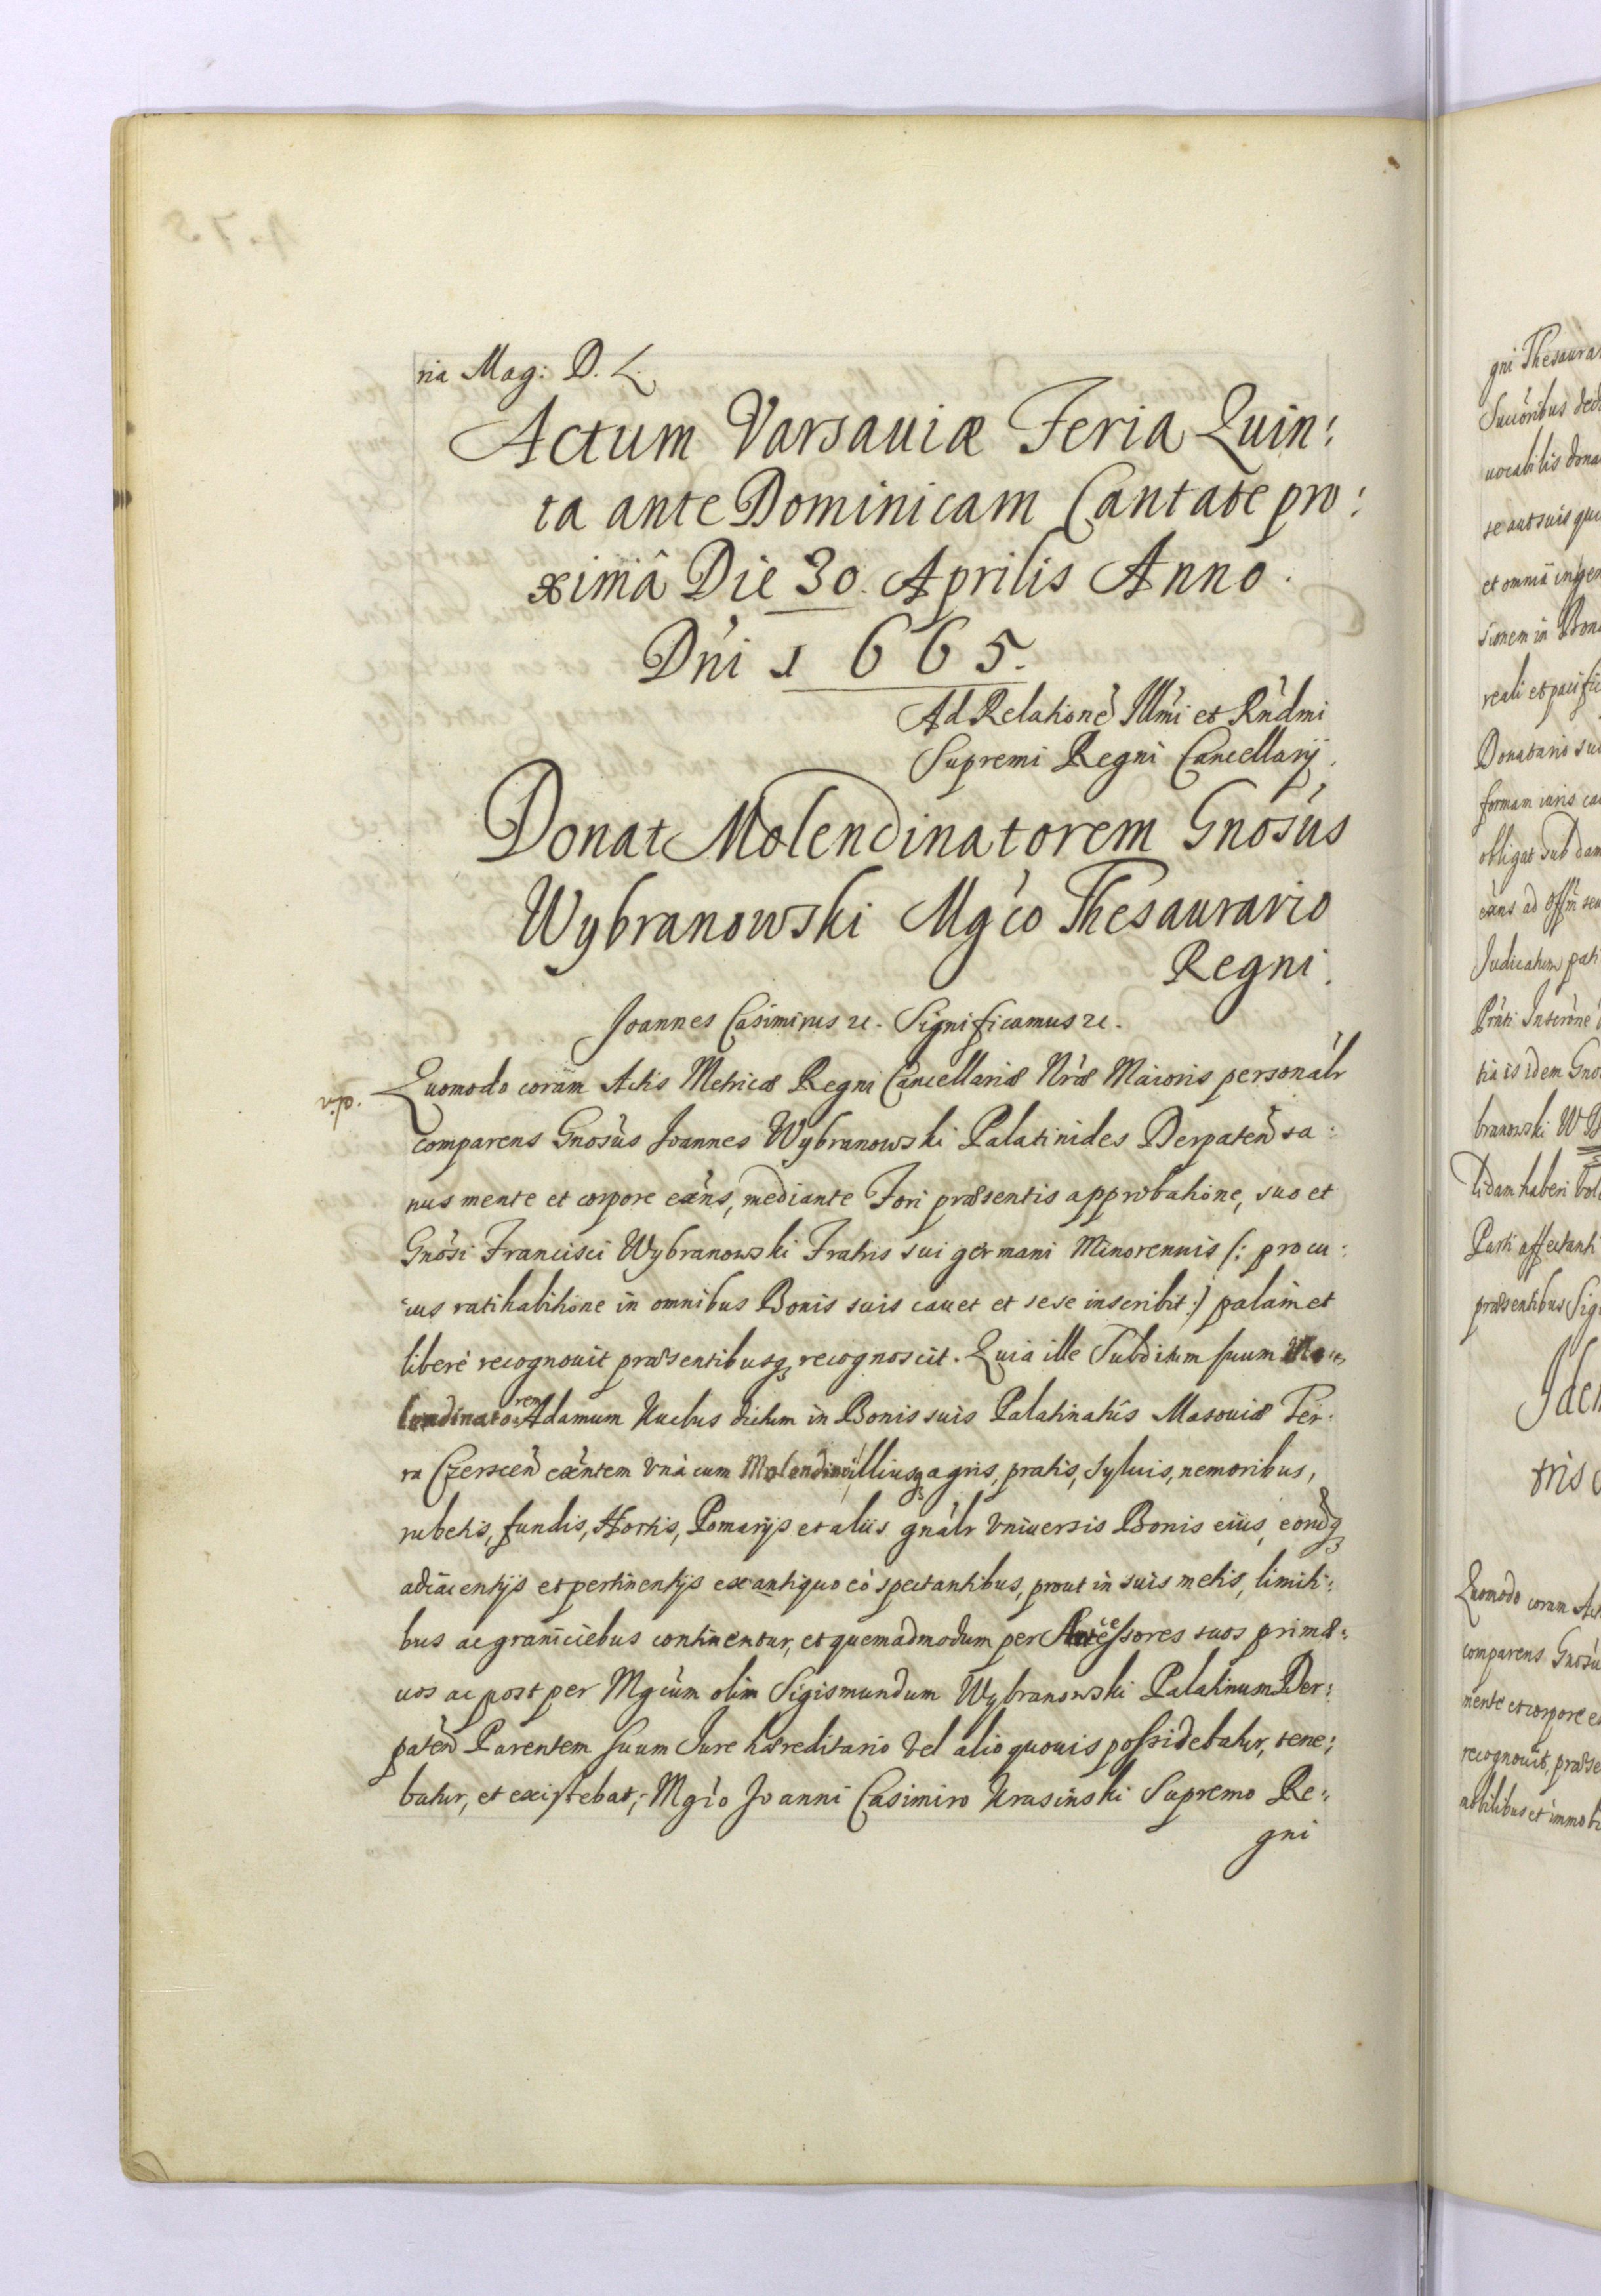 ria Mag: D. L.
Actum Varsauiæ Feria Quin:
ta ante Dominicam Cantate pro:
ximâ Die 30. Aprilis Anno.
Dni 1665.
Ad Relatione Illmi et Rndmi
Supremi Regni Cancellarij.
Donat Molendinatorem Gnosus
Wybranowski Mgco Thesaurario
Regni.
Joannes Casimirus etc. Significamus etc.
Quomodo coram Actis Metricæ Regni Cancellariæ Nræ Maioris personalr
comparens Gnosus Joannes Wybranowski Palatinides Derpaten sa:
nus mente et corpore exns, mediante Fori præsentis approbatione, suo et
Gnosi Francisci Wybranowski Fratris sui germani Minorennis (: pro cu:
ius ratihabitione in omnibus Bonis suis cauet et sese inscribit :) palam et
libere recognouit præsentibusq recognoscit. Quia ille Subditum suum Mo:
lendinatorem Adamum Kucbus dictum in Bonis suis Palatinatus Masouiæ Ter:
ra Czerscen exntem vna cum Molendino, illiusq agris, pratis, syluis, nemoribus,
rubetis, fundis, Hortis, Pomarijs et aliis gnalr vniuersis Bonis eius, eorudq
adiacentijs et pertinentijs ex antiquo eo spectantibus, prout in suis metis, limiti:
bus ac graniciebus continentur, et quemadmodum per Antecessores suos primæ:
uos ac post per Mgcum olim Sigismundum Wybranowski Palatinum Der:
paten Parentem suum Jure hæreditario vel alio quouis possidebatur, tene:
batur, et existebat, Mgco Joanni Casimiro Krasinski Supremo Re:
gni
gni Thesaurar
uocabilis dona
reali et pacific
obligat sub dam
tia is idem Gno
branowski W
tidam haberi vol
Parti affectanti
præsentibus Sig
Iden
tris
Quomodo coram Act
comparens Gnosu
mente et corpore e
recognouit, præse
mobilibus et immobi